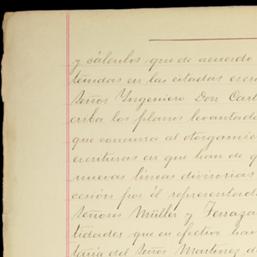 y cálculos que de acuerdo
tenidas en las citadas escri
Señor Ingeniero Don Carl
los planos levantado
que concurra al otorgamie
escrituras en que han de q
nuevas líneas divisorias
cesión por él representad
Señores Müller y Terraza
tidades que en efectivo han
tanía del Señor Martinez d